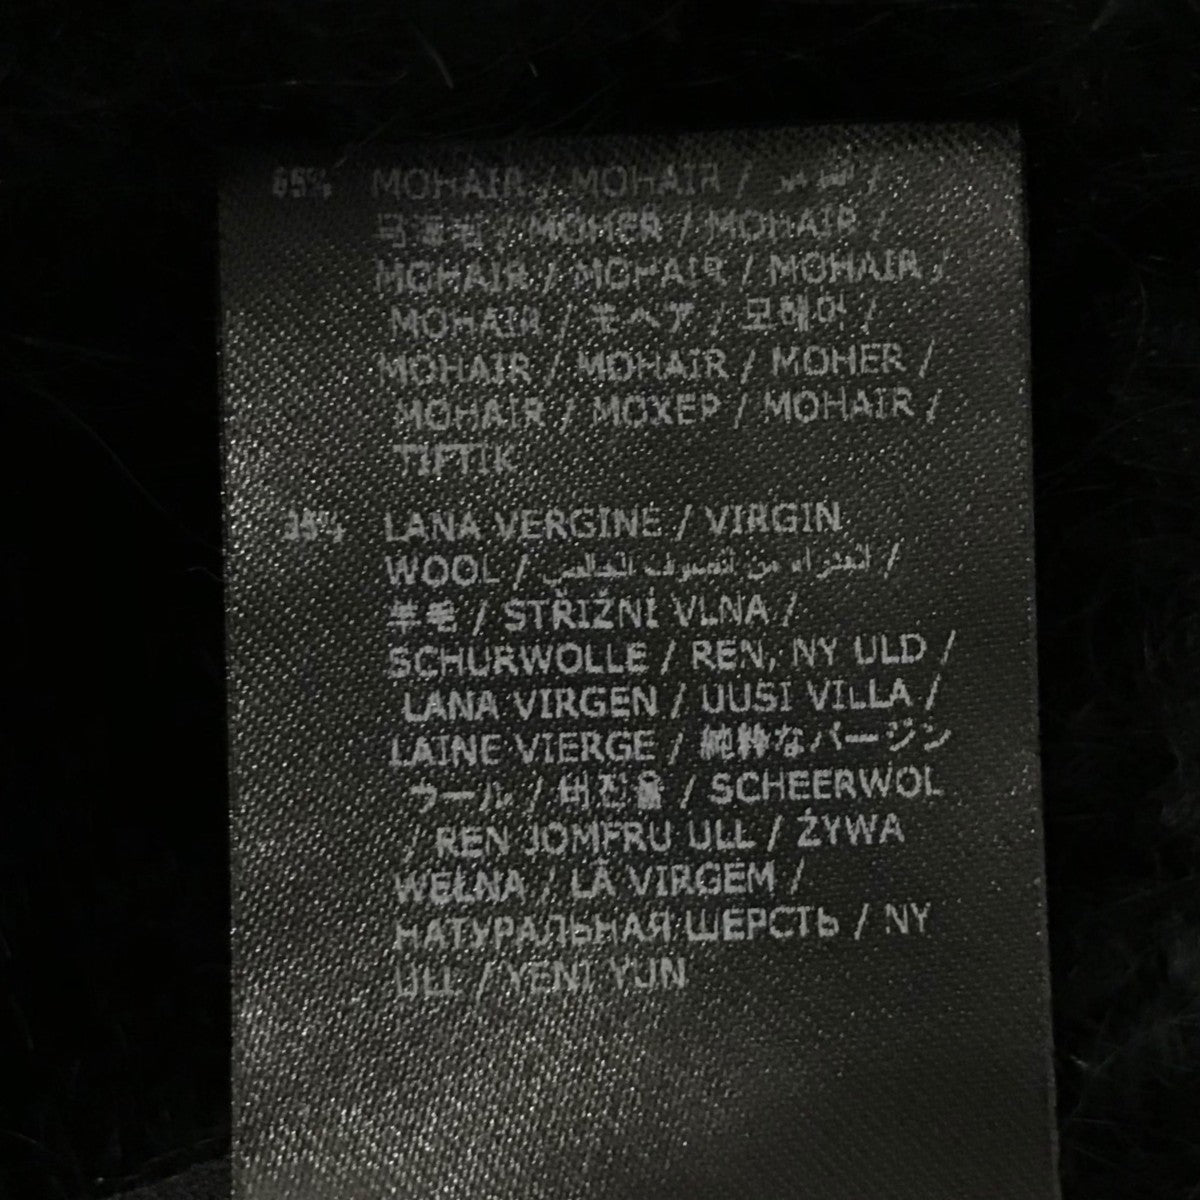 65% MOHAIR / MOHAIR / الموهير /
马海毛 / MOHER / MOHAIR /
MOHAIR / MOHAIR / MOHAIR /
MOHAIR / モヘア / 모헤어 /
MOHAIR / MOHAIR / MOHER /
MOHAIR / МОХЕР / MOHAIR /
TIFTIK
35% LANA VERGINE / VIRGIN
WOOL / من الصوف /
羊毛 / STŘIŽNÍ VLNA /
SCHURWOLLE / REN, NY ULD /
LANA VIRGEN / UUSI VILLA /
LAINE VIERGE / 純粋なバージン
ウール / 버진울 / SCHEERWOL
/ REN JOMFRU ULL / ŻYWA
WEŁNA / LÃ VIRGEM /
НАТУРАЛЬНАЯ ШЕРСТЬ / NY
ULL / YENI YUN